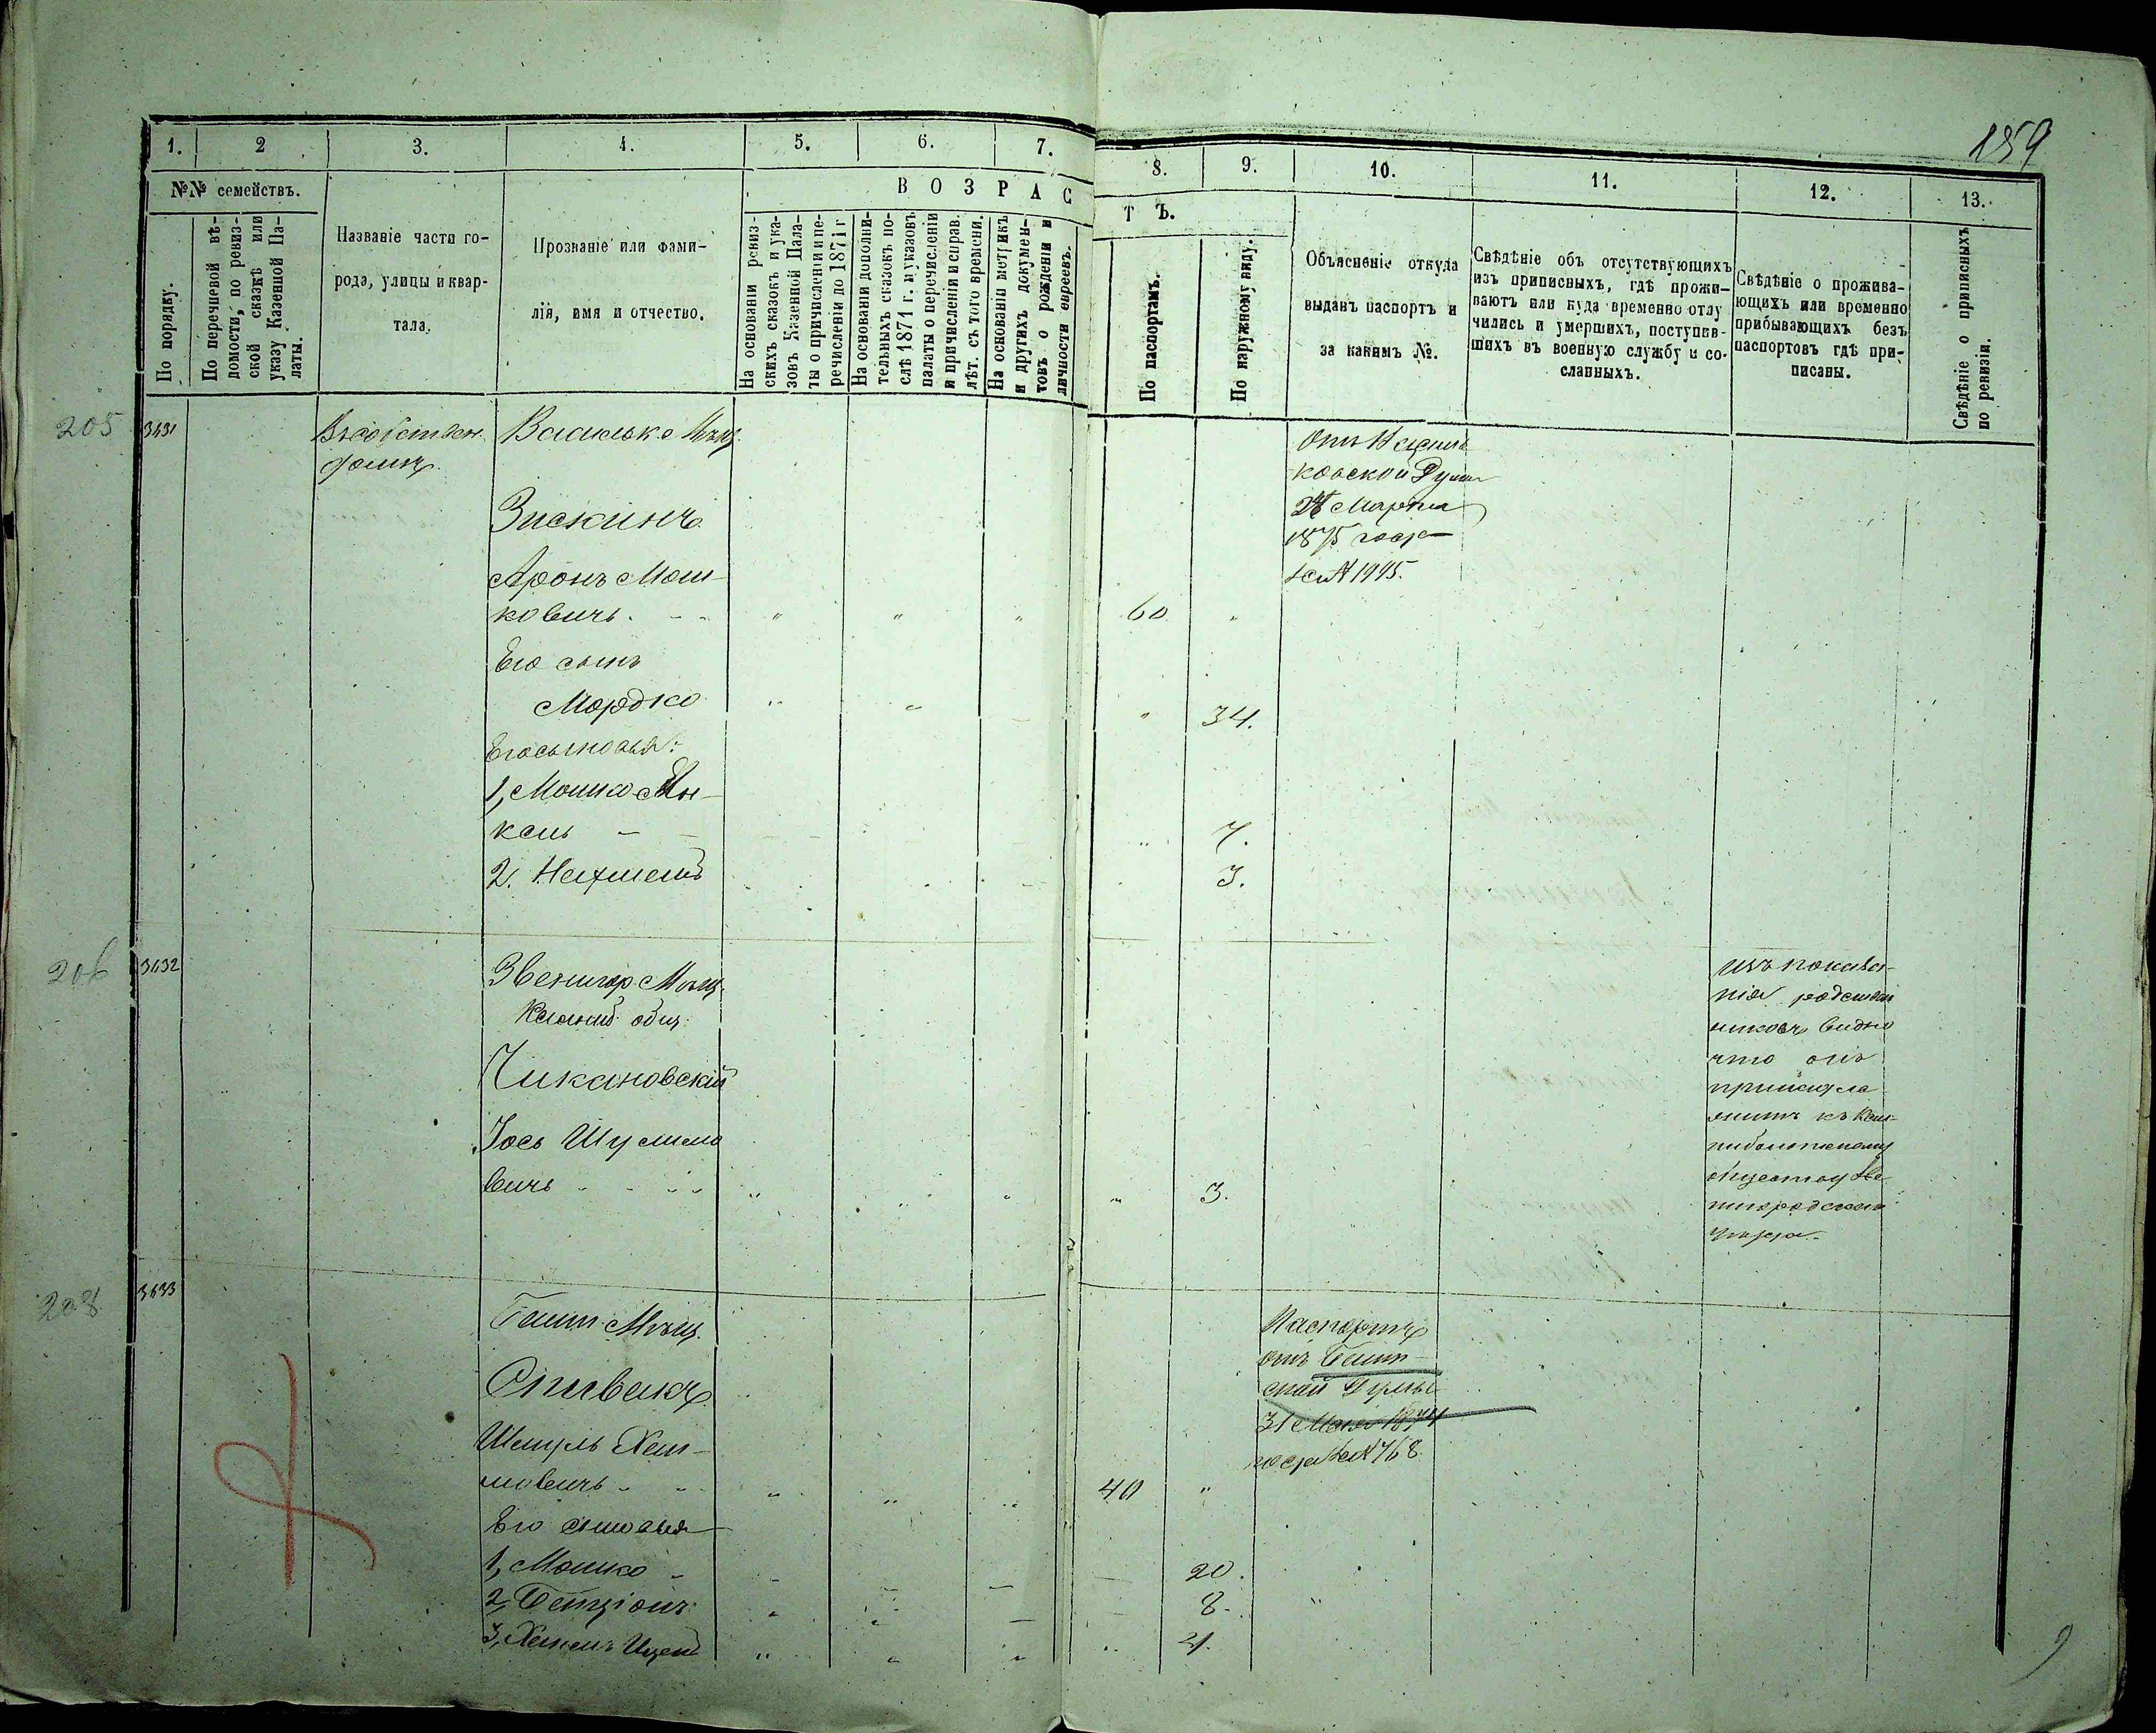 259
1. 2 3. 4. 5. 6. 7. 8. 9. 10. 11. 12. 13.
№№ семействъ.
В О З Р А С
Т Ъ.
По порядку.
По перечневой вѣ-
домости, по ревиз-
ской сказкѣ или
указу Казенной Па-
латы.
Названіе части го-
рода, улицы и квар-
тала.
Прозваніе или фами-
лія, имя и отчество.
На основаніи ревиз-
скихъ сказокъ и ука-
зовъ Казенной Пала-
ты о причисленіи и пе-
речисленіи до 1871 г
На основаніи дополни-
тельныхъ сказокъ по-
слѣ 1871 г. и указовъ
палаты о перечисленіи
и причисленіи и справ.
лѣт. съ того времени.
На основаніи метрикъ
и другихъ докумен-
товъ о рожденіи и
личности евреевъ.
По паспортамъ.
По наружному виду.
Объясненіе откуда
выданъ паспортъ и
за какимъ №.
Свѣдѣніе объ отсутствующихъ
изъ приписныхъ, гдѣ прожи-
ваютъ или куда временно отлу
чились и умершихъ, поступив-
шихъ въ военную службу и со-
сланныхъ.
Свѣдѣніе о прожива-
ющихъ или временно
прибывающихъ безъ
паспортовъ гдѣ при-
писаны.
Свѣдѣніе о приписныхъ
по ревизіи.
205 3431
Въ собствен.
домѣ.
Мѣщ.
Зискинъ
Аронъ Мош-
ковичъ. 60
Его сынъ
Мордко 34.
Его сыновья:
1, Мошко Ян-
кель 7.
2. 3.
Отъ
ковской Думы
24 Марта
1875 года
за № 1995.
206 3432
Звенигор. Мѣщ.
общ.
Чикановскій
Іось Шулимо
вичъ 3.
изъ показа-
нія родствен
никовъ видно
что онъ
принадле
житъ къ Кал-
ниболотскому
обществу Зве-
нигородскаго
уѣзда.
208 3433
Мѣщ.
Спивакъ
Шмуль Хаи-
мовичъ 40
Его сыновья
1, Мошко 20.
2, Бенціонъ 8.
3, Ицекъ 4.
Паспортъ
отъ
ской Думы
31 Мая 1874
года за № 768.